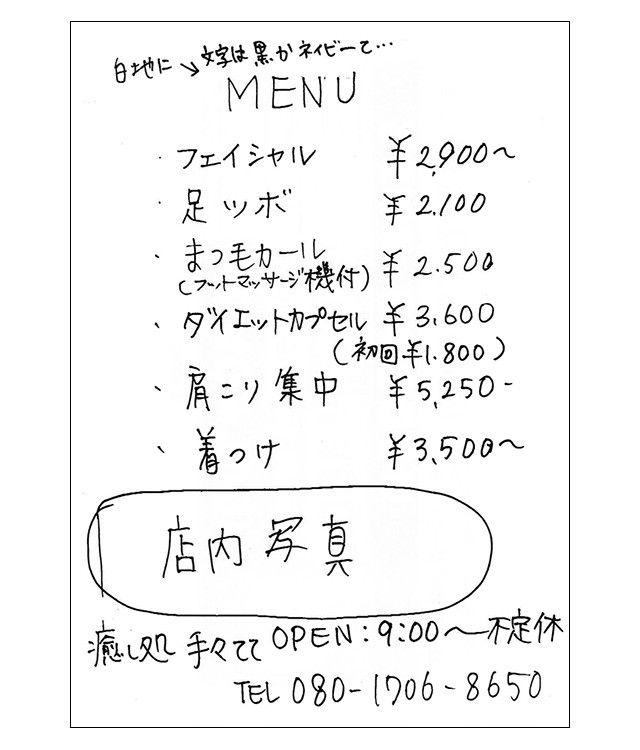 白地に→文字は黒かネイビーで…
MENU
・フェイシャル ¥2,900〜
・足ツボ ¥2.100
・まつ毛カール ¥2.500
(フットマッサージ機付)
・ダイエットカプセル ¥3,600
(初回¥1.800)
・肩こり集中 ¥5,250-
・着つけ ¥3,500〜
店内写真
癒し処 手々てて OPEN:9:00〜不定休
TEL 080-1706-8650